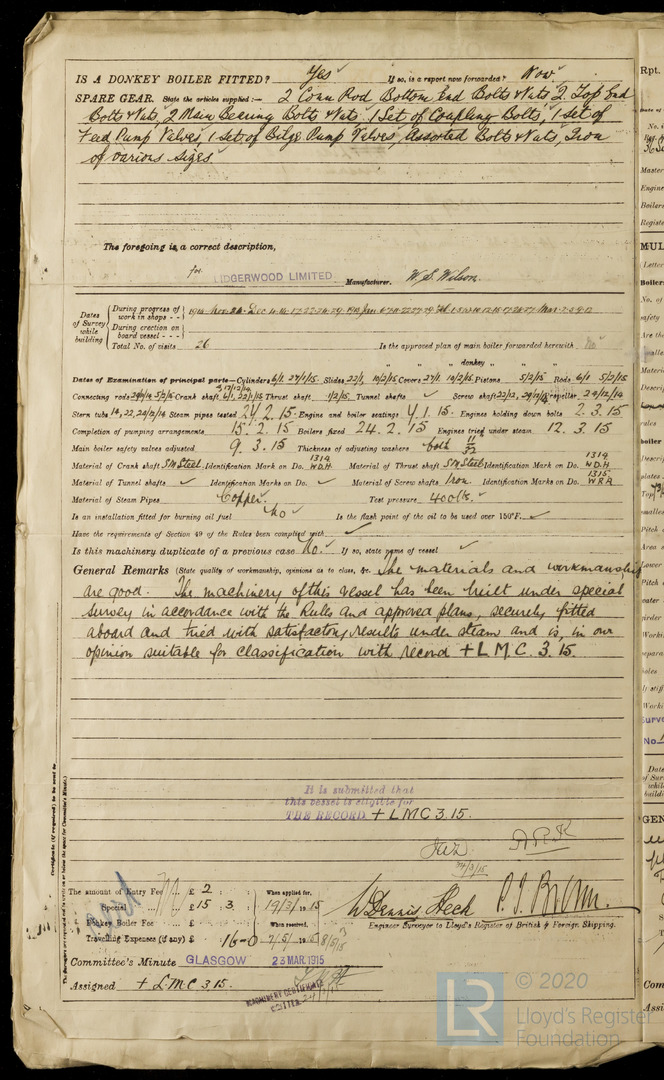 IS A DONKEY BOILER FITTED? Yes ✓ If so, is a report now forwarded? Now ✓
SPARE GEAR. State the articles supplied:— 2 Conn Rod Bottom End Bolts & Nuts, 2 Top End
Bolts & Nuts, 2 Main Bearing Bolts & Nuts, 1 Set of Coupling Bolts, 1 Set of
Feed Pump Valves, 1 Set of Bilge Pump Valves, Assorted Bolts & Nuts, Iron
of various sizes
The foregoing is a correct description,
for LIDGERWOOD LIMITED. Manufacturer. W. S. Wilson.
Dates of Survey while building
During progress of work in shops - -
During erection on board vessel - - -
Total No. of visits 26 Is the approved plan of main boiler forwarded herewith No
" " " donkey " " "
Dates of Examination of principal parts—Cylinders 6/1, 27/1/15. Slides 22/1, 10/2/15 Covers 27/1 10/2/15 Pistons 5/2/15 Rods 6/1 5/2/15
Connecting rods 5/2/15 Crank shaft 6/1, 22/1/15 Thrust shaft 1/2/15 Tunnel shafts ✓ Screw shaft Propeller 29/12/14
Stern tube Steam pipes tested 24.2.15. Engine and boiler seatings 4.1.15. Engines holding down bolts 2.3.15
Completion of pumping arrangements 15.2.15 Boilers fixed 24.2.15 Engines tried under steam 12.3.15
Main boiler safety valves adjusted 9.3.15 Thickness of adjusting washers both 11/32
Material of Crank shaft SM Steel Identification Mark on Do. 1314 WDH Material of Thrust shaft SM Steel Identification Mark on Do. 1314 WDH
Material of Tunnel shafts ✓ Identification Marks on Do. ✓ Material of Screw shafts Iron. Identification Marks on Do. 1315 WRA
Material of Steam Pipes Copper. Test pressure 400 lbs. ✓
Is an installation fitted for burning oil fuel No Is the flash point of the oil to be used over 150°F. ✓
Have the requirements of Section 49 of the Rules been complied with ✓
Is this machinery duplicate of a previous case No. If so, state name of vessel ✓
General Remarks (State quality of workmanship, opinions as to class, &c. The materials and workmanship
are good. The machinery of this vessel has been built under special
survey in accordance with the Rules and approved plans, securely fitted
aboard and tried with satisfactory results under steam and is, in our
opinion suitable for classification with record + L M C. 3. 15.
It is submitted that
this vessel is eligible for
THE RECORD. + LMC 3.15.
The amount of Entry Fee £ 2 When applied for,
Special £ 15 . 3 . 19/3/1915
Donkey Boiler Fee £ When received,
Travelling Expenses (if any) £ 16-0
W Dennis Heck P. J. Brown.
Engineer Surveyor to Lloyd's Register of British & Foreign Shipping.
Committee's Minute GLASGOW 23 MAR. 1915
Assigned + L.M.C 3.15.
MACHINERY CERTIFICATE
WRITTEN
© 2020
LR Lloyd's Register
Foundation